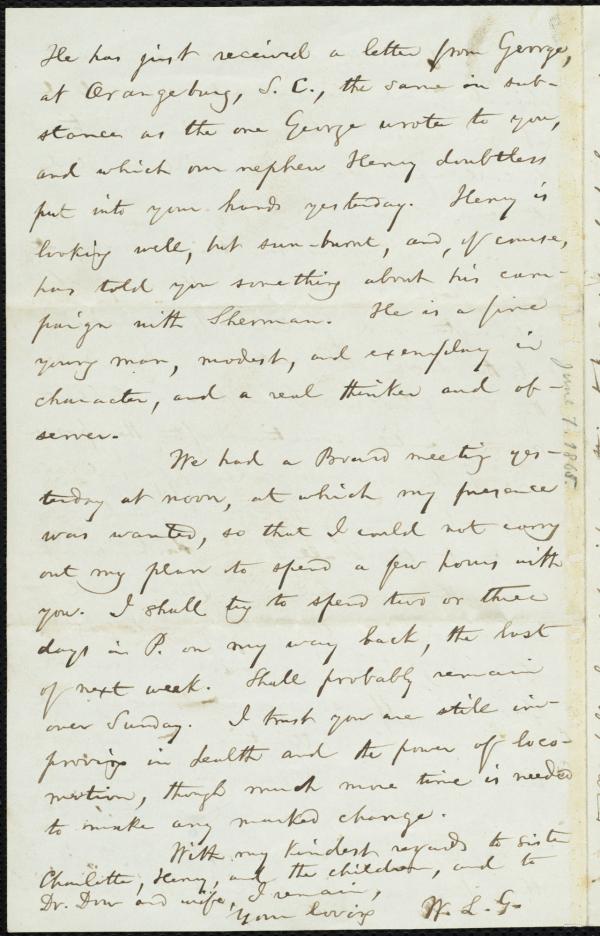 He has just received a letter from George,
at Orangeburg, S. C., the same in sub-
stance as the one George wrote to you,
and which our nephew Henry doubtless
put into your hands yesterday. Henry is
looking well, but sun-burnt, and, of course,
has told you something about his cam-
paign with Sherman. He is a fine
young man, modest, and exemplary in
character, and a real thinker and ob-
server.
We had a Board meeting yes-
terday at noon, at which my presence
was wanted, so that I could not carry
out my plan to spend a few hours with
you. I shall try to spend two or three
days in P. on my way back, the last
of next week. Shall probably remain
over Sunday. I trust you are still im-
proving in health and the power of loco-
motion, though much more time is needed
to make any marked change.
With my kindest regards to sister
Charlotte, Henry, and the children, and to
Dr. Dow and wife, I remain,
Your loving W. L. G.
June 7. 1865